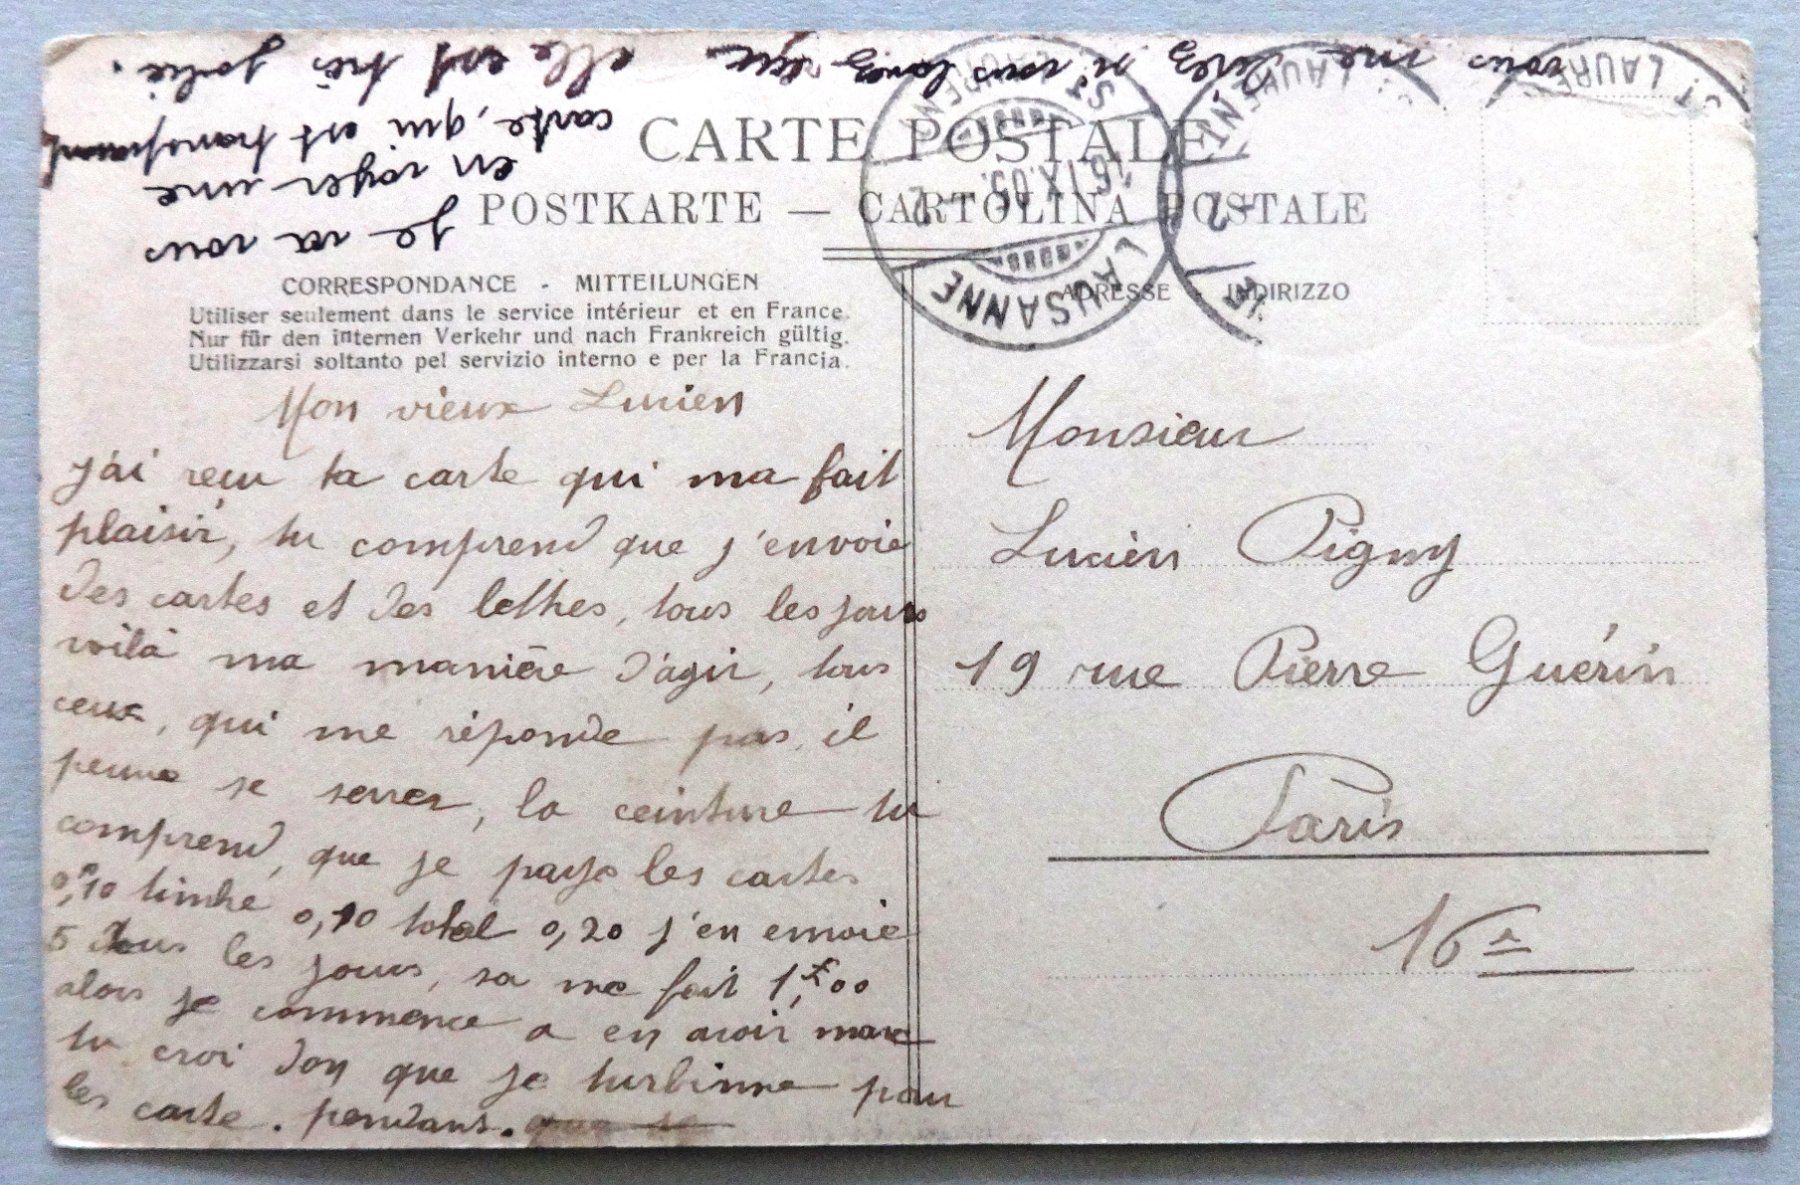 Je va vous
en voyer une
carte, qui est transparent
vous me direz si vous lavez reçu elle est très jolie.
CARTE POSTALE
POSTKARTE — CARTOLINA POSTALE
LAUSANNE
St LAURENT
16.IX.05.
2
CORRESPONDANCE - MITTEILUNGEN
Utiliser seulement dans le service intérieur et en France.
Nur für den internen Verkehr und nach Frankreich gültig.
Utilizzarsi soltanto pel servizio interno e per la Francia.
ADRESSE - INDIRIZZO
Mon vieux Lucien
j'ai reçu ta carte qui ma fait
plaisir, tu comprend que j'envoie
des cartes et des lettres, tous les jours
voilà ma manière d'agir, tous
ceux, qui me réponde pas, il
peuve se serrer, la ceinture tu
comprend, que je paye les cartes
0,10 timbre 0,10 total 0,20 j'en envoie
5 tous les jours, sa me fait 1,f00
alors je commence a en avoir marc
tu croi don que je turbinne pour
les carte. pendans.
Monsieur
Lucien Pigny
19 rue Pierre Guérin
Paris
16e